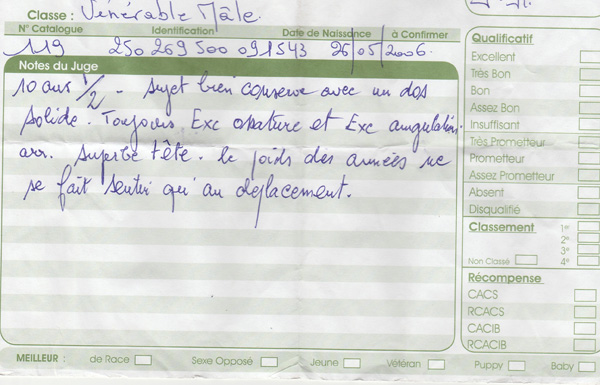 Classe : Vénérable Mâle.
N° Catalogue Identification Date de Naissance à Confirmer
119 250 269 500 091543 26/05/2006.
Notes du Juge
10 ans 1/2 - sujet bien conservé avec un dos
solide. Toujours Exc ossature et Exc angulation
arr. Superbe tête. le poids des années ne
se fait sentir qu'au déplacement.
Qualificatif
Excellent
Très Bon
Bon
Assez Bon
Insuffisant
Très Prometteur
Prometteur
Assez Prometteur
Absent
Disqualifié
Classement 1er
2e
3e
Non Classé 4e
Récompense
CACS
RCACS
CACIB
RCACIB
MEILLEUR : de Race Sexe Opposé Jeune Vétéran Puppy Baby